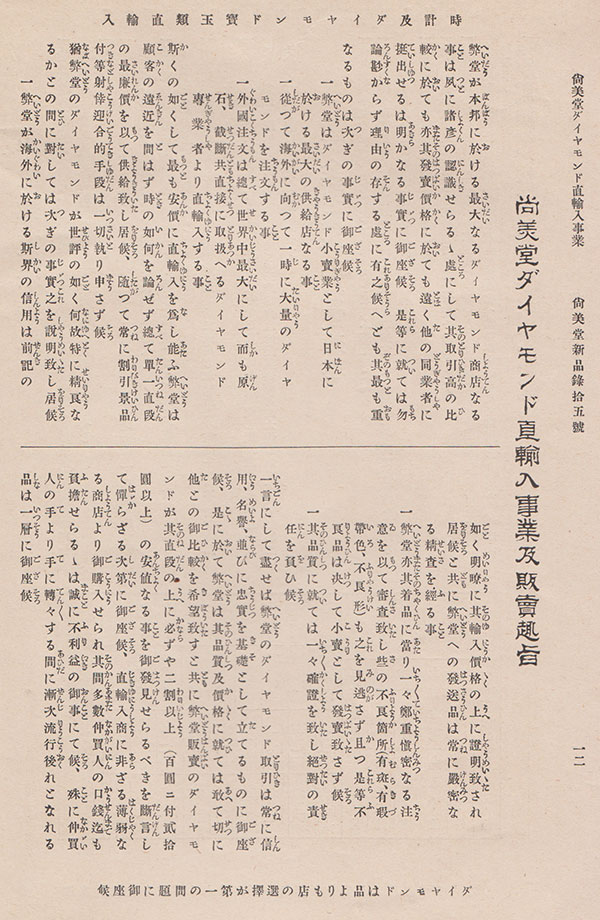 入輸直類玉寶ドンモヤイダ及計時
尙美堂ダイヤモンド直輸入事業
尙美堂新品錄拾五號
一二
尙美堂ダイヤモンド直輸入事業及販賣趣旨
弊堂が本邦に於ける最大なるダイヤモンド商店なる
事は夙に諸彥の認識せらるゝ處にして其取引高の比
較に於ても亦其發賣價格に於ても遠く他の同業者に
挺出せるは明かなる事實に御座候 是等に就ては勿
論尠からず理由の存する處に有之候へども其最も重
なるものは次ぎの事實に御座候
一弊堂はダイヤモンド小賣業として日本に
於ける最大の供給店なる事
一從つて海外に向つて一時に大量のダイヤ
モンドを注文する事
一外國注文は總て世界中最大にして而も原
石、截斷共直接に取扱へるダイヤモンド
專業者より直輸入する事
斯くの如くして最も安價に直輸入を爲し能ふ弊堂は
顧客の遠近を問はず時の如何を論ぜず總て單一直段
の最廉價を以て供給致し居候、隨つて常に割引景品
付等射倖迎合的手段は一切執り申さず候
猶弊堂のダイヤモンドが世評の如く何故特に精良な
るかとの間に對しては次ぎの事實之を說明致し居候
一弊堂が海外に於ける斯界の信用は前記の
如く明瞭に其輸入價格の上に證明致され
居候と共に弊堂への發送品は常に嚴密な
る精查を經る事
一弊堂亦其着品に當り一々鄭重愼密なる注
意を以て審查致し些の不良箇所(有斑、有瑕
帶色、不良形)も之を見逃さず且つ是等不
良品は決して小賣として發賣致さず候
一其品質に就ては一々確證を致し絕對の責
任を負ひ候
一言にして盡せば弊堂のダイヤモンド取引は常に信
用、名譽、並びに忠實を基礎として立てるものに御座
候、こゝに於て弊堂は其品質及價格に就ては敢て切に
他との御比較を希望致すと共に弊堂販賣のダイヤモ
ンドが其直段の上に必ずや二割以上 (百圓ニ付貳拾
圓以上) の安値なる事を御發見せらるべきを斷言し
て憚らざる次第に御座候、直輸入商に非ざる薄弱な
る商店より御購入せられ其間多數仲買人の口錢迄も
負擔せらるゝは誠に不利益の御事にて候、殊に仲買
人の手より手に轉々する間に漸次流行後れとなれる
品は一層に御座候
候座御に題問の一第が擇選の店もりよ品はドンモヤイダ